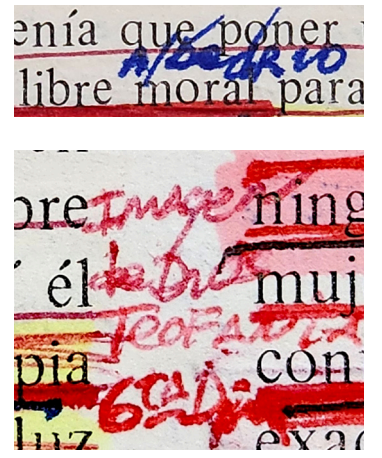 enía que poner
Albedrío
libre moral para
bre Imagen ning
él de Dios muj
Teofanía
pia con
6ª Di
luz exac